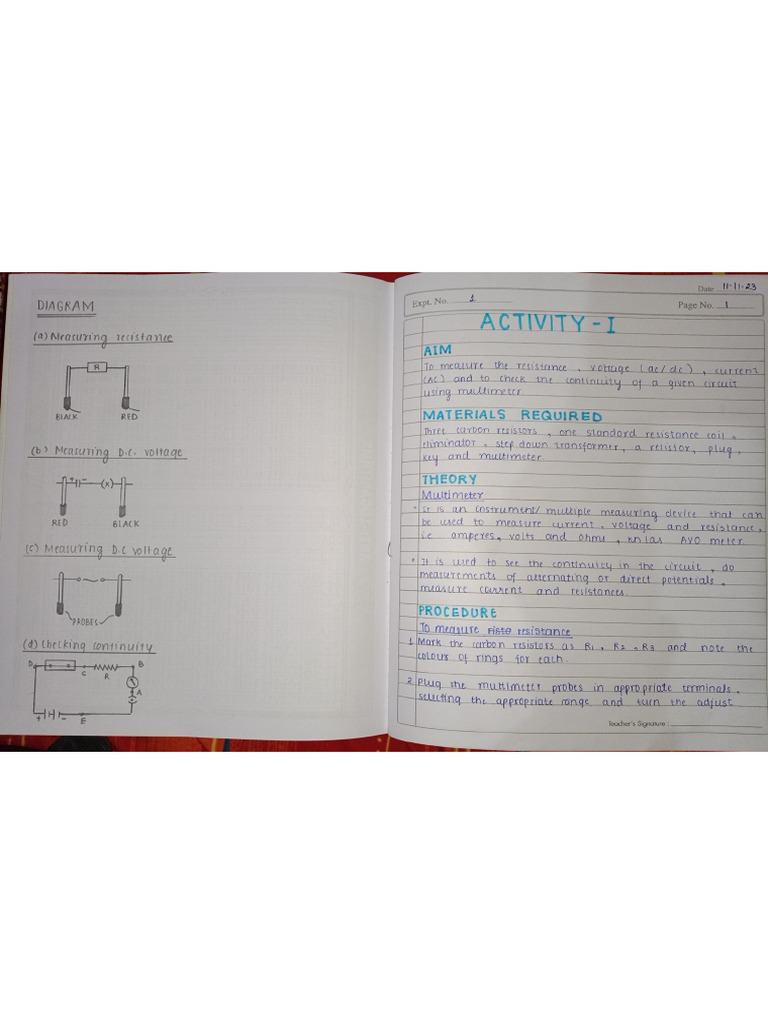 DIAGRAM
(a) Measuring recistance
R
BLACK RED
(b) Measuring D.C. voltage
+ - (x)
RED BLACK
(c) Measuring D.C voltage
PROBES
(d) Checking continuity
D C R B
A
+ - E
Date 11-11-23
Expt. No. 1 Page No. 1
ACTIVITY - I
AIM
To measure the resistance, voltage (ac/dc), current
(AC) and to check the continuity of a given circuit
using multimeter.
MATERIALS REQUIRED
Three carbon resistors, one standard resistance coil,
eliminator, step down transformer, a resistor, plug,
key and multimeter.
THEORY
Multimeter
• It is an instrument/ multiple measuring device that can
be used to measure current, voltage and resistance,
i.e amperes, volts and ohms, AVO meter.
• It is used to see the continuity in the circuit, do
measurements of alternating or direct potentials,
measure current and resistances.
PROCEDURE
To measure resistance
1. Mark the carbon resistors as R1, R2, R3 and note the
colour of rings for each.
2. Plug the multimeter probes in appropriate terminals,
selecting the appropriate range and turn the adjust
Teacher's Signature :